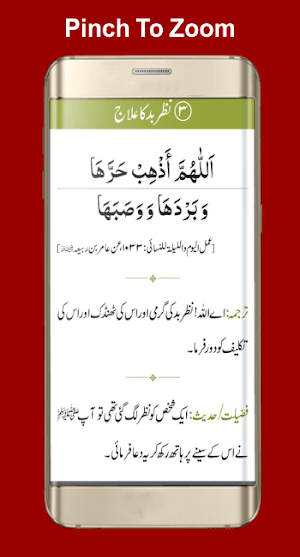 Pinch To Zoom
③ نظرِ بد کا علاج
اَللّٰهُمَّ أَذْهِبْ حَرَّهَا
وَبَرْدَهَا وَوَصَبَهَا
[عمل الیوم واللیلة للنسائی: ۱۰۳۳، عن عامر بن ربیعہ]
ترجمہ: اے اللہ! نظرِ بد کی گرمی اور اس کی ٹھنڈک اور اس کی
تکلیف کو دور فرما۔
فضیلت/حدیث: ایک شخص کو نظر لگ گئی تھی تو آپ ﷺ
نے اس کے سینے پر ہاتھ رکھ کر یہ دعا فرمائی۔